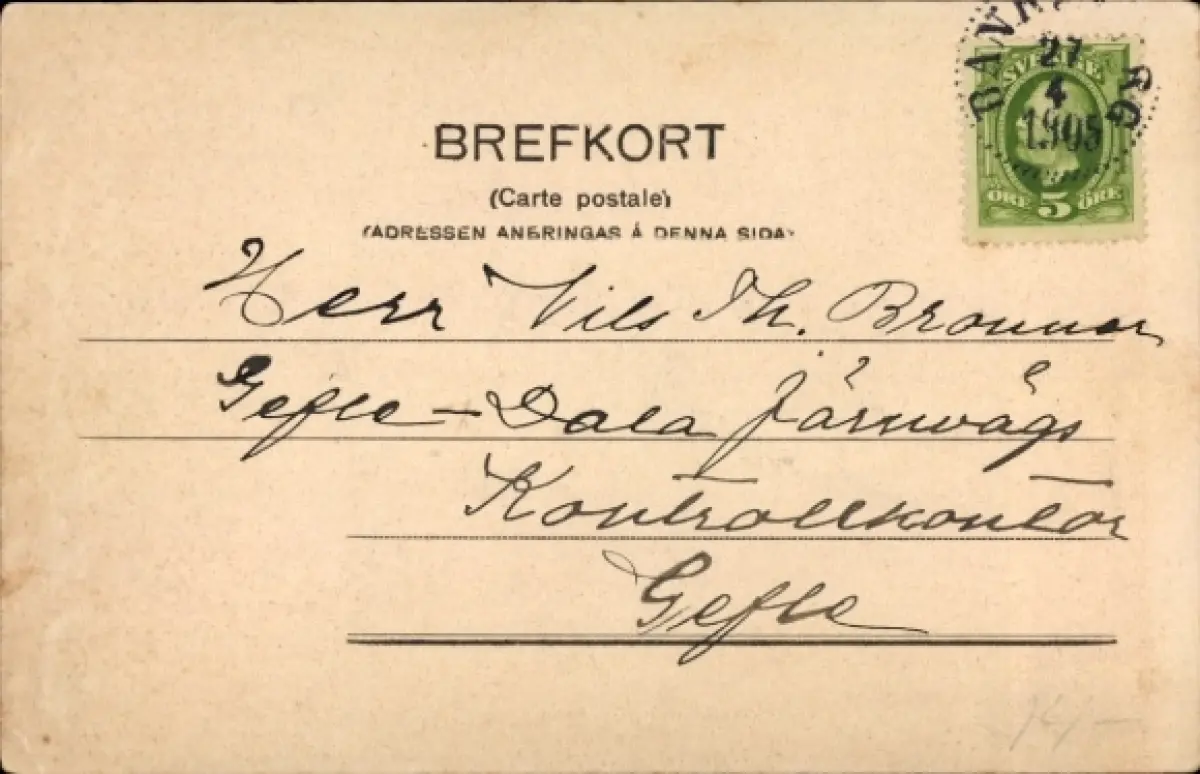 BREFKORT
(Carte postale)
(ADRESSEN ANBRINGAS Å DENNA SIDA)
SVERIGE
27
4
1905
ÖRE 5 ÖRE
Herr Nils Th.
Gefle-Dala Järnvägs
Kontrollkontor
Gefle